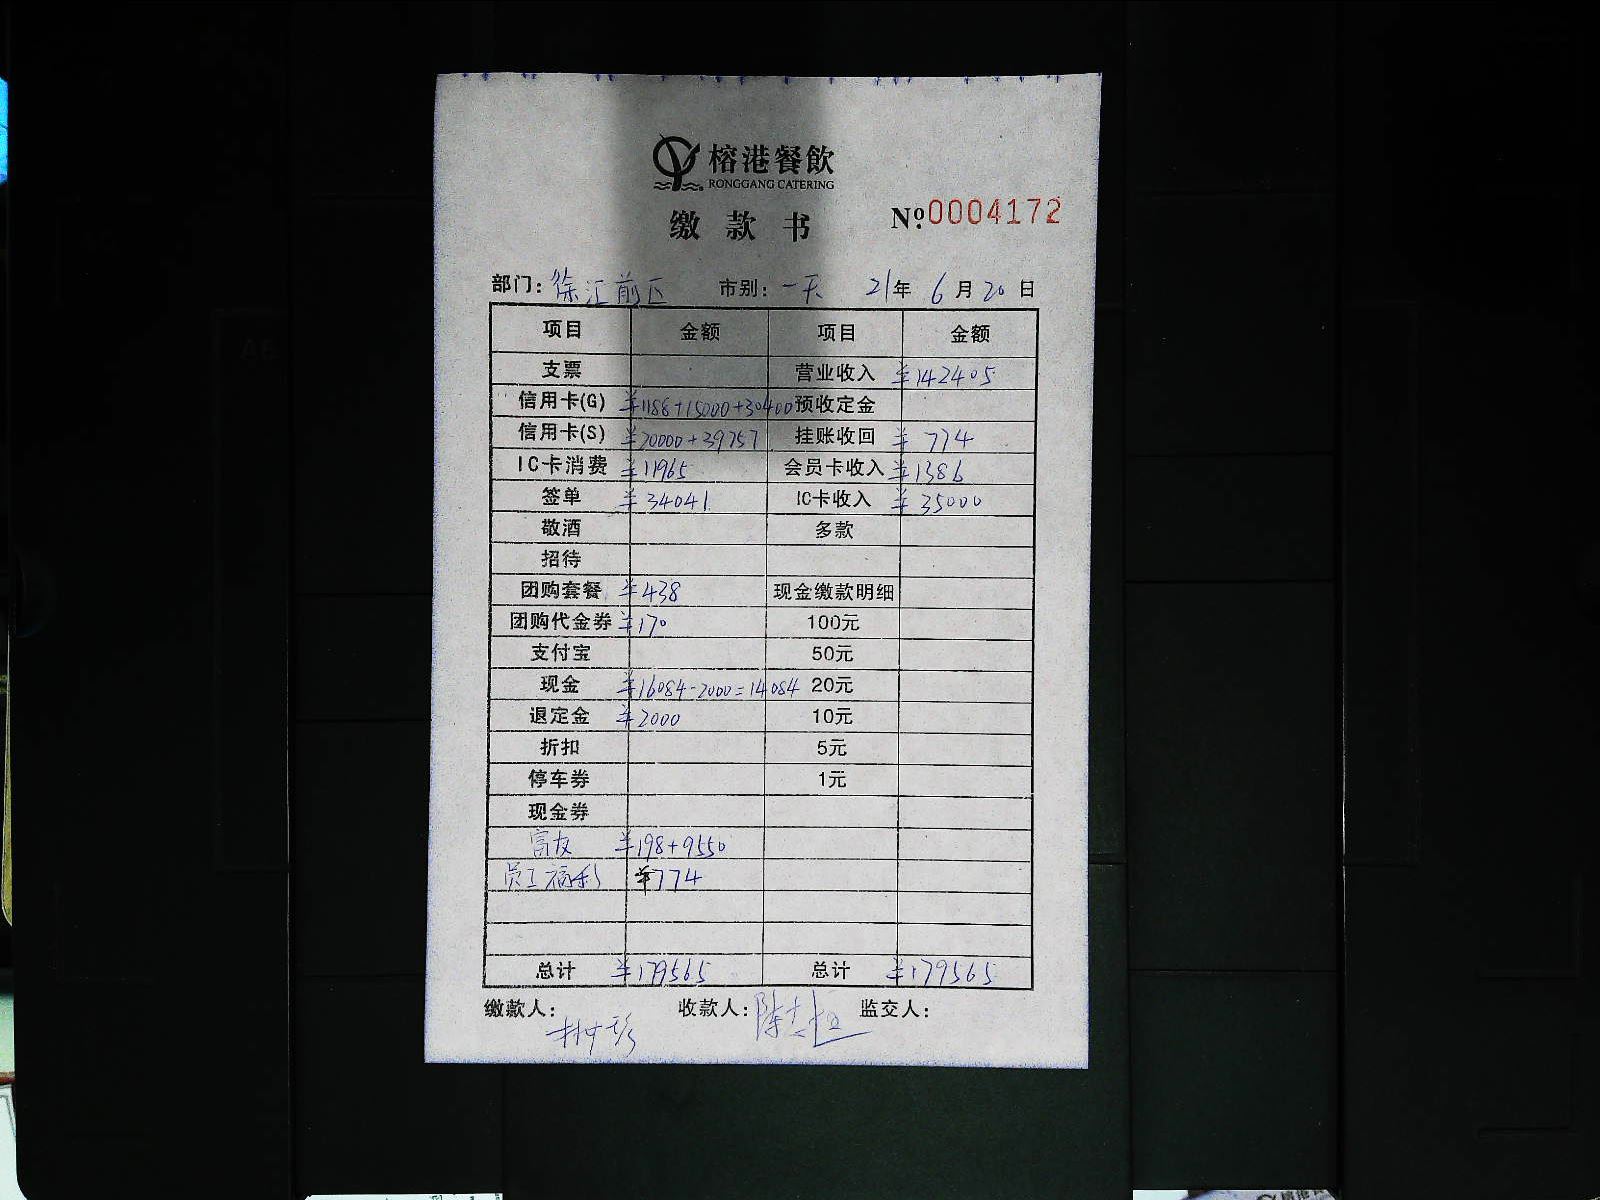 榕港餐飲
RONGGANG CATERING
缴款书 №:0004172
部门：徐汇前区 市别：一天 21年6月20日
项目 金额 项目 金额
支票 营业收入 ¥142405
信用卡(G) ¥1186+15000+30400 预收定金
信用卡(S) ¥20000+39757 挂账收回 ¥774
IC卡消费 ¥11965 会员卡收入 ¥1386
签单 ¥34041 IC卡收入 ¥35000
敬酒 多款
招待
团购套餐 ¥438 现金缴款明细
团购代金券 ¥170 100元
支付宝 50元
现金 ¥16084-2000=14084 20元
退定金 ¥2000 10元
折扣 5元
停车券 1元
现金券
富友 ¥198+9550
员工福利 ¥774
总计 ¥179565 总计 ¥179565
缴款人： 收款人： 监交人：